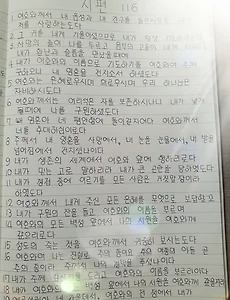 시편 116
1 여호와께서 내 음성과 내 간구를
저를 사랑하는도다
2 그 귀를 내게 기울이셨으므로 내가 평생에
3 사망의 줄이 나를 두르고 음부의 고통이 내게
내가 환난과 슬픔을 만났을 때에
4 내가 여호와의 이름으로 기도하기를 여호와여
구하오니 내 영혼을 건지소서 하였도다
5 여호와는 은혜로우시며 의로우시며 우리 하나님은
자비하시도다
6 여호와께서는 어리석은 자를 보존하시나니 내가
때에 나를 구원하셨도다
7 내 영혼아 네 평안함에 돌아갈지어다 여호와께서
너를 후대하심이로다
8 주께서 내 영혼을 사망에서, 내 눈을 눈물에서, 내 발을
넘어짐에서 건지셨나이다
9 내가 생존 세계에서 여호와 앞에 행하리로다
10 내가 믿는 고로 말하리라 내가 큰 곤란을 당하였도다
11 내가 경겁 중에 이르기를 모든 사람은 거짓말쟁이라
하였도다
12 여호와께서 내게 주신 모든 은혜를 무엇으로 보답할꼬
13 내가 구원의 잔을 들고 여호와의 이름을 부르며
14 여호와의 모든 백성 앞에서 나의 서원을 여호와께
갚으리로다
15 성도의 죽는 것을 여호와께서 귀중히 보시는도다
16 여호와여 나는 진실로 주의 종이요 주의 여종의 아들 곧
주의 종이라
17 내가 주께 여호와의 이름을 부르리이다
18 내가 여호와의 모든 백성 앞에서 나의 서원을 여호와께